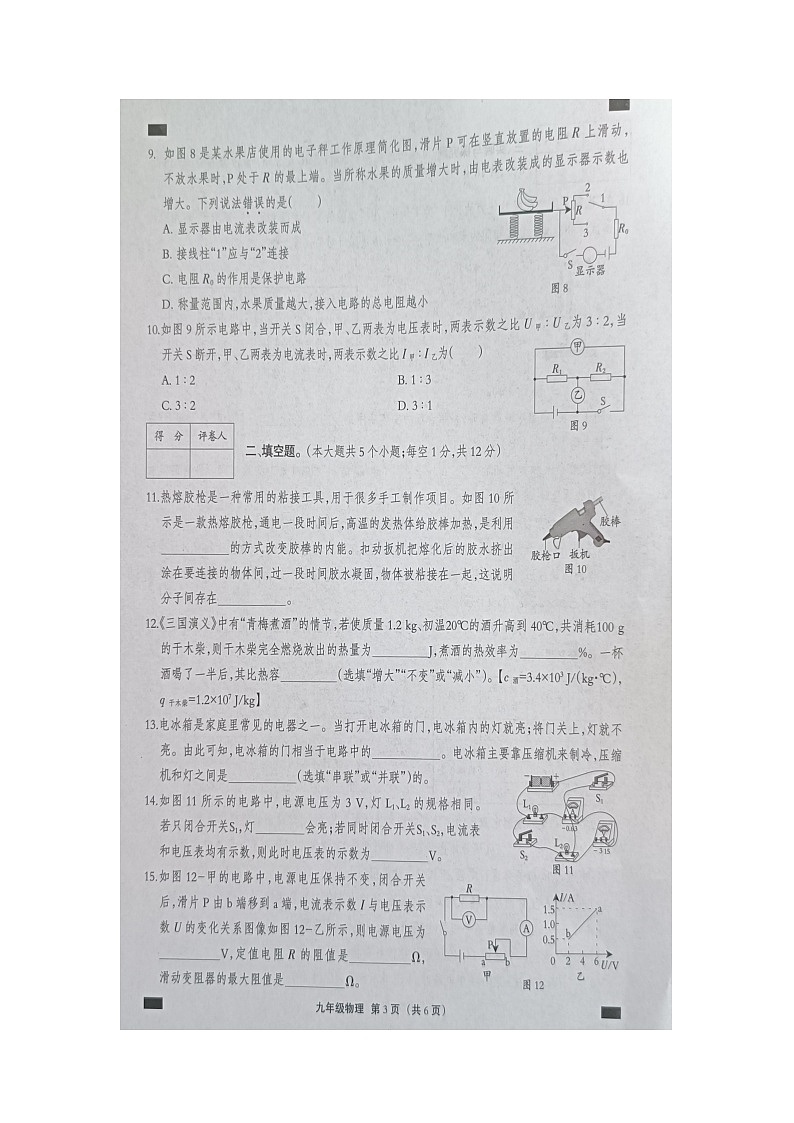 9. 如图 8 是某水果店使用的电子秤工作原理简化图,滑片 P 可在竖直放置的电阻 R 上滑动,
不放水果时,P 处于 R 的最上端。当所称水果的质量增大时,由电表改装成的显示器示数也
增大。下列说法错误的是(  )
A. 显示器由电流表改装而成
B. 接线柱“1”应与“2”连接
C. 电阻 R₀ 的作用是保护电路
D. 称量范围内,水果质量越大,接入电路的总电阻越小
P
R
2
1
3
R₀
S
显示器
图 8
10.如图 9 所示电路中,当开关 S 闭合,甲、乙两表为电压表时,两表示数之比 U甲∶U乙为 3∶2,当
开关 S 断开,甲、乙两表为电流表时,两表示数之比 I甲∶I乙为(  )
A. 1∶2 B. 1∶3
C. 3∶2 D. 3∶1
甲
R₁
R₂
乙
S
图 9
得 分 评卷人
二、填空题。(本大题共 5 个小题;每空 1 分,共 12 分)
11.热熔胶枪是一种常用的粘接工具,用于很多手工制作项目。如图 10 所
示是一款热熔胶枪,通电一段时间后,高温的发热体给胶棒加热,是利用
__________的方式改变胶棒的内能。扣动扳机把熔化后的胶水挤出
涂在要连接的物体间,过一段时间胶水凝固,物体被粘接在一起,这说明
分子间存在__________。
胶棒
胶枪口 扳机
图 10
12.《三国演义》中有“青梅煮酒”的情节,若使质量 1.2 kg、初温20℃的酒升高到 40℃,共消耗100 g
的干木柴,则干木柴完全燃烧放出的热量为________J,煮酒的热效率为________%。一杯
酒喝了一半后,其比热容________(选填“增大”“不变”或“减小”)。【c酒=3.4×10³ J/(kg·℃),
q干木柴=1.2×10⁷ J/kg】
13.电冰箱是家庭里常见的电器之一。当打开电冰箱的门,电冰箱内的灯就亮;将门关上,灯就不
亮。由此可知,电冰箱的门相当于电路中的__________。电冰箱主要靠压缩机来制冷,压缩
机和灯之间是__________(选填“串联”或“并联”)的。
14.如图 11 所示的电路中,电源电压为 3 V,灯 L₁、L₂ 的规格相同。
若只闭合开关S₁,灯_______会亮;若同时闭合开关S₁、S₂,电流表
和电压表均有示数,则此时电压表的示数为________V。
L₁
S₁
A
-0.63
S₂
L₂
V
-3 15
图 11
15.如图 12-甲的电路中,电源电压保持不变,闭合开关
后,滑片 P 由 b 端移到 a 端,电流表示数 I 与电压表示
数 U 的变化关系图像如图 12-乙所示,则电源电压为
_________V,定值电阻 R 的阻值是_________Ω,
滑动变阻器的最大阻值是_________Ω。
R
V
A
P
a b
甲
I/A
1.5
1.0
0.5
a
b
0 2 4 6 U/V
乙
图 12
九年级物理 第 3 页 (共 6 页)